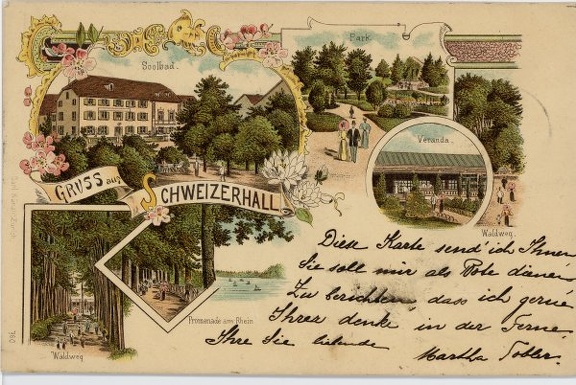 Soolbad.
Park
Veranda.
Waldweg.
GRUSS aus SCHWEIZERHALL
Promenade am Rhein
Waldweg
Diese Karte send' ich Ihnen
Sie soll mir als Bote dienen,
Zu berichten, dass ich gerne
Ihrer denke in der Ferne.
Ihre Sie liebende
Martha Tobler.